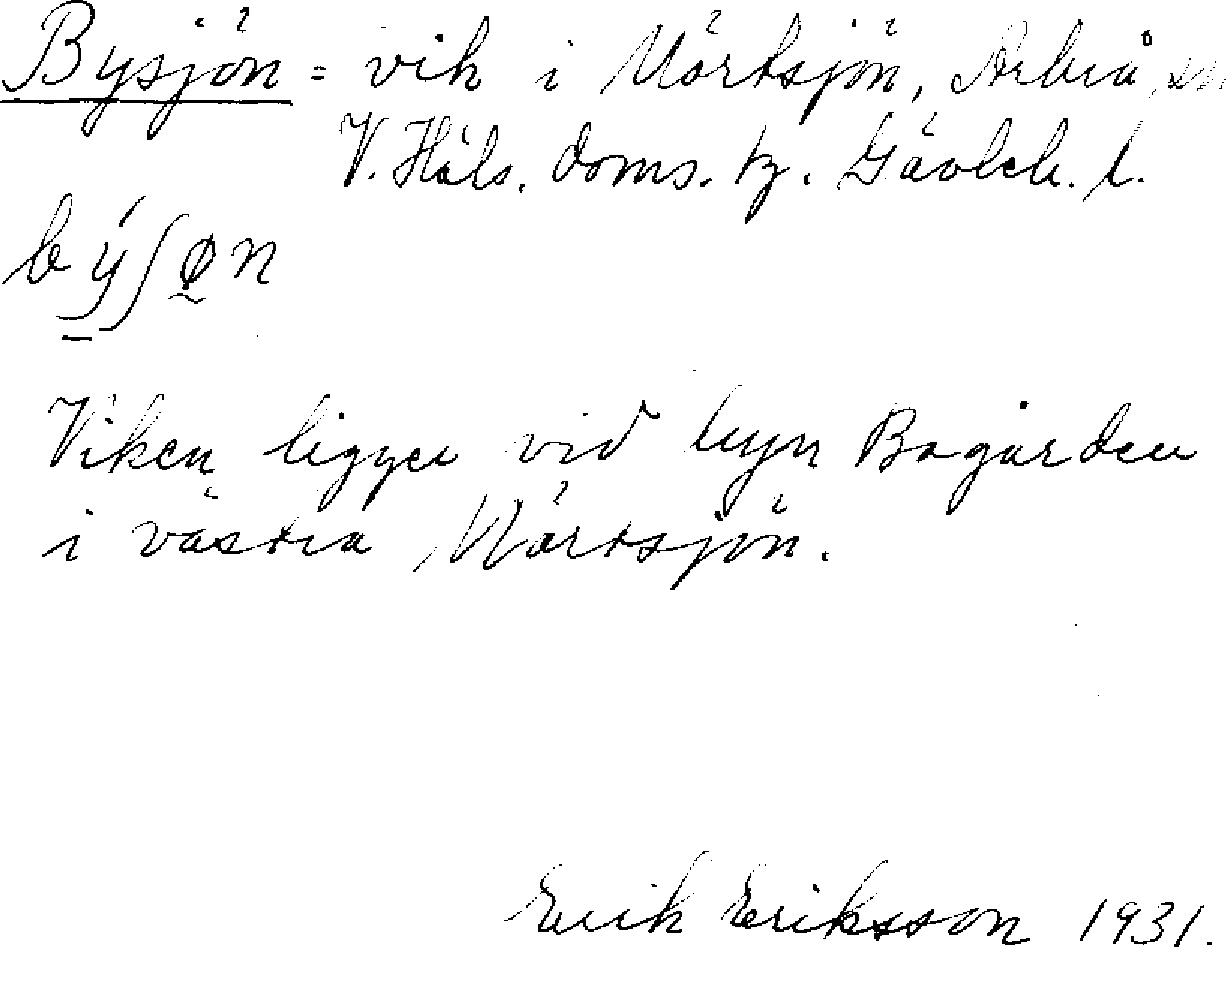 Bysjön = vik i Mörtsjön, Arbrå sn
V. Häls. doms. tg. Gävleb. l.
býʃøn
Viken ligger vid byn Bogården
i västra Mörtsjön.
Erik Eriksson 1931.